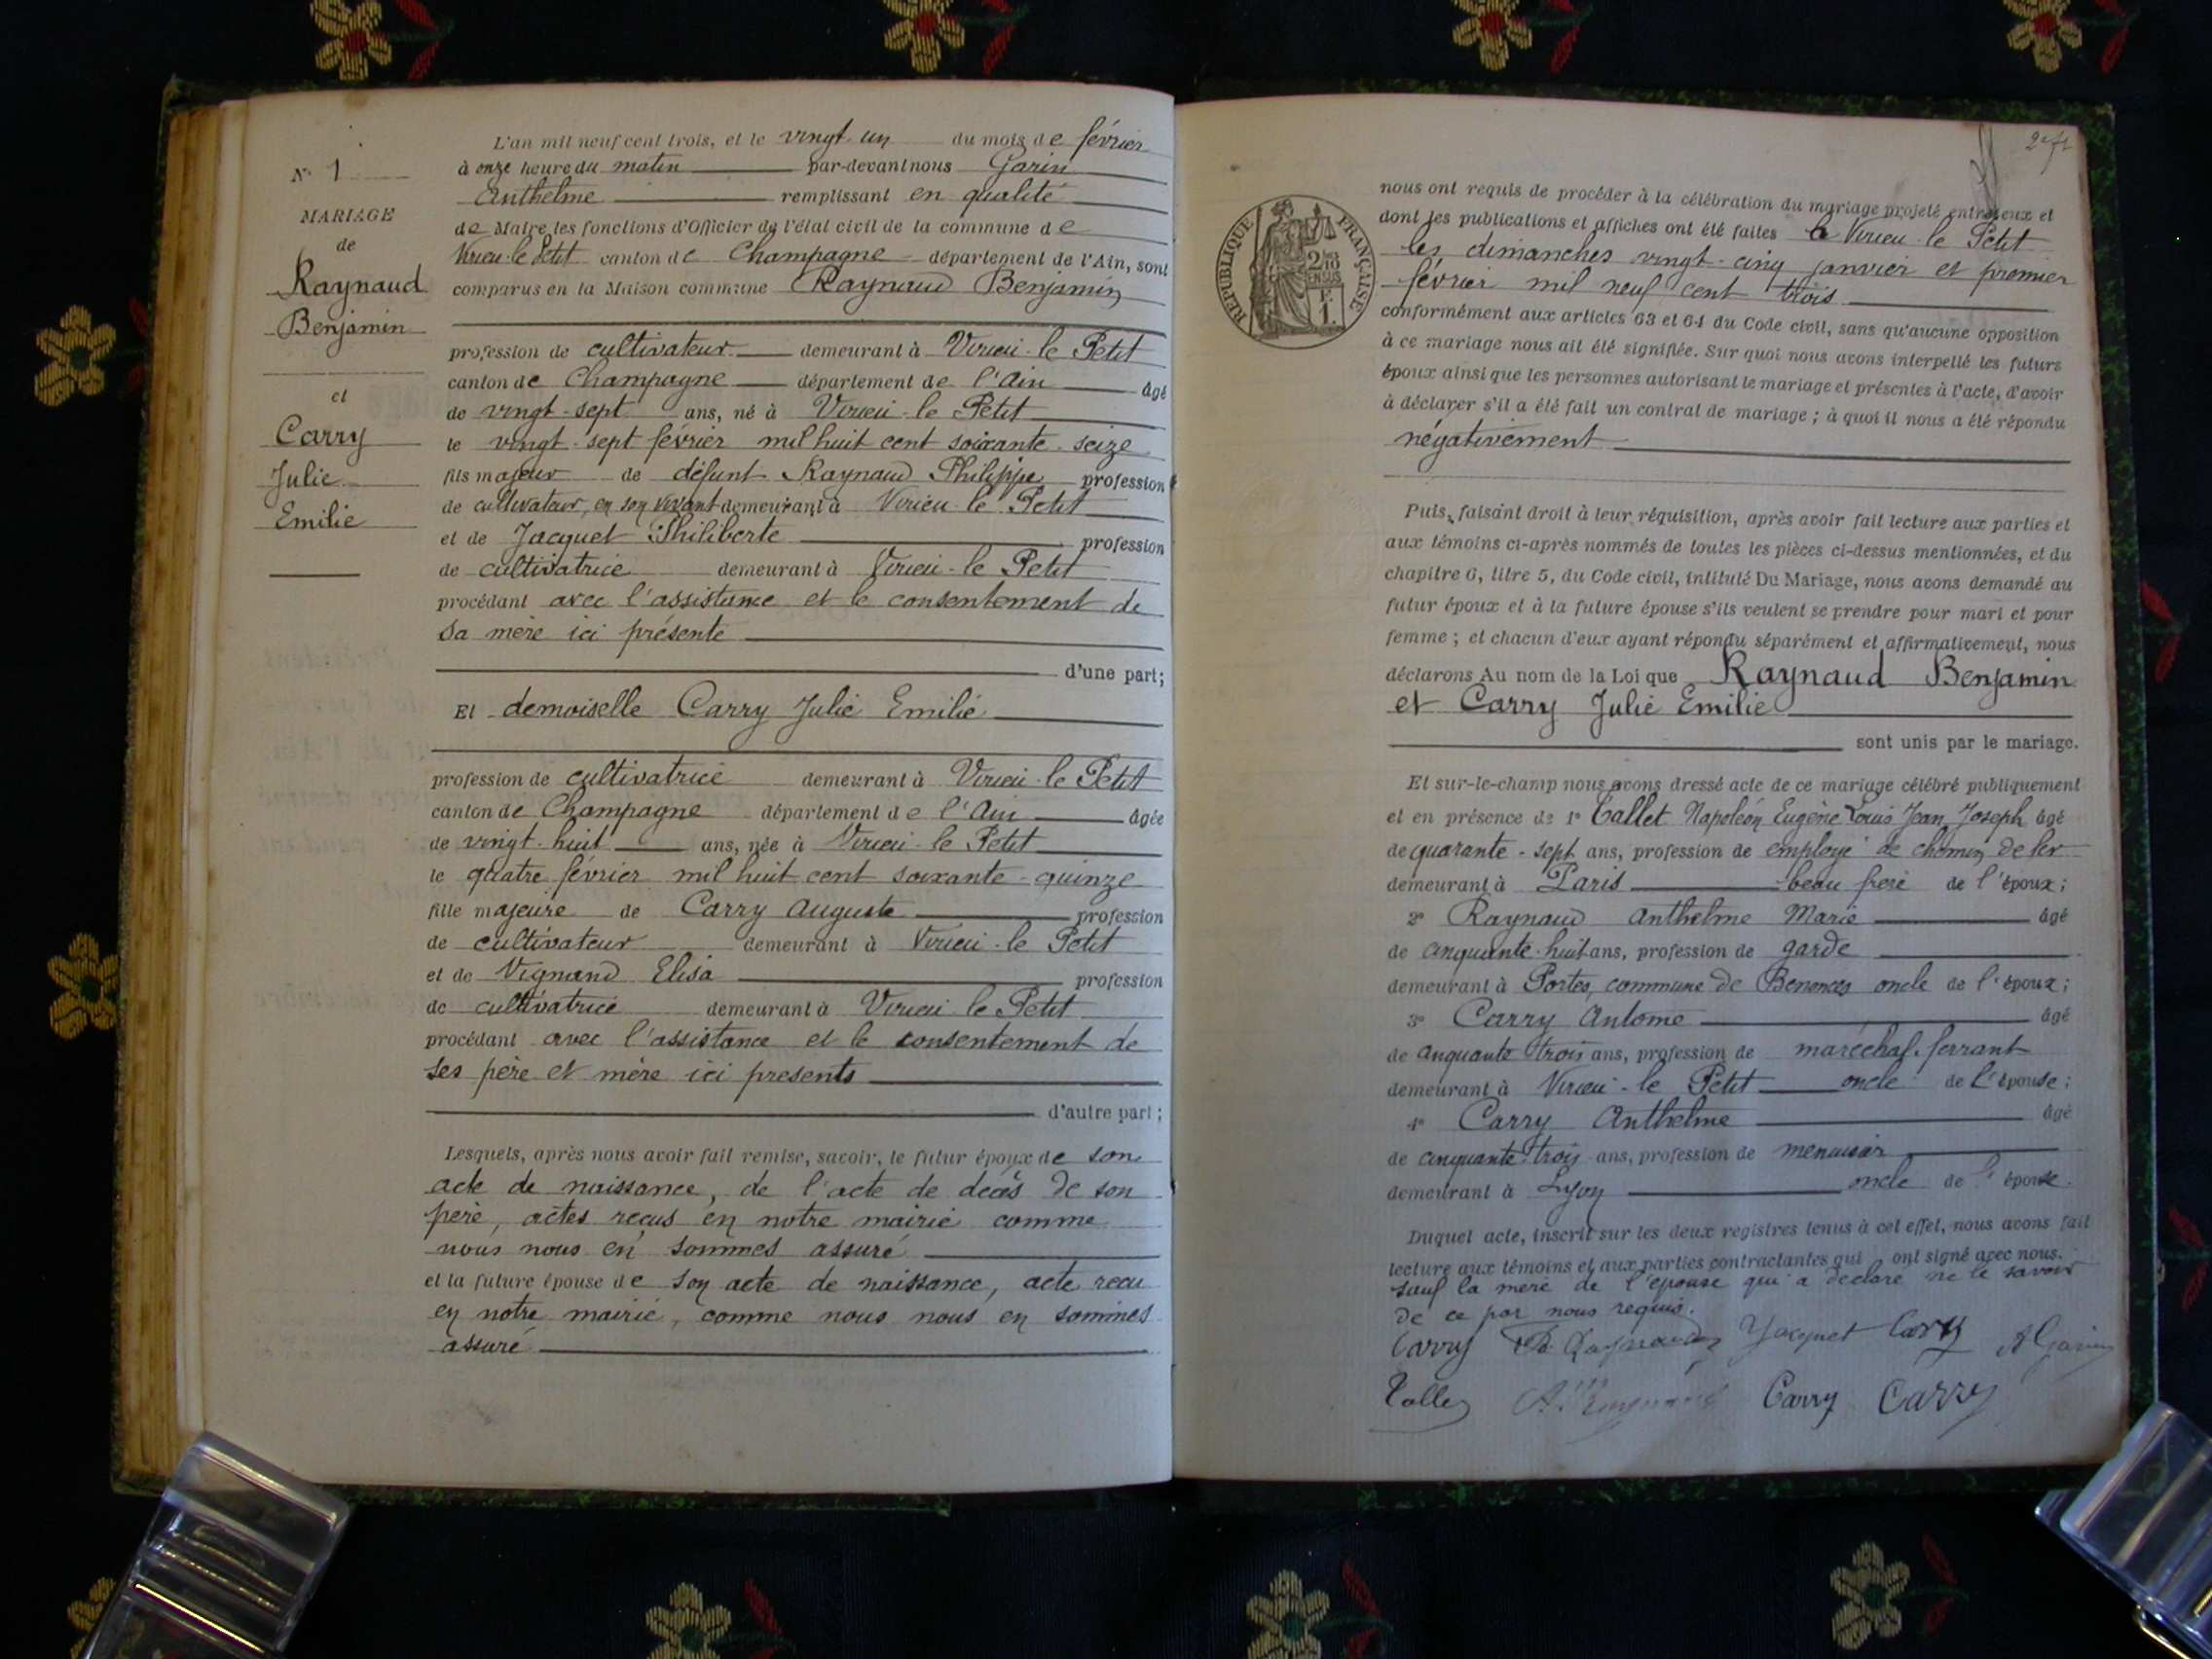 N° 1
MARIAGE
de
Raynaud
Benjamin
et
Carry
Julie
Emilie
L'an mil neuf cent trois, et le vingt un du mois de février
à onze heure du matin par-devant nous Garin
Anthelme remplissant en qualité
de Maire les fonctions d'Officier de l'état civil de la commune de
Virieu-le Petit canton de Champagne département de l'Ain, sont
comparus en la Maison commune Raynaud Benjamin
profession de cultivateur demeurant à Virieu-le Petit
canton de Champagne département de l'Ain âgé
de vingt-sept ans, né à Virieu-le Petit
le vingt-sept février mil huit cent soixante-seize
fils majeur de défunt Raynaud Philippe profession
de cultivateur, en son vivant demeurant à Virieu-le Petit
et de Jacquet Philiberte profession
de cultivatrice demeurant à Virieu-le Petit
procédant avec l'assistance et le consentement de
sa mère ici présente
d'une part;
Et demoiselle Carry Julie Emilie
profession de cultivatrice demeurant à Virieu-le Petit
canton de Champagne département de l'Ain âgée
de vingt-huit ans, née à Virieu-le Petit
le quatre février mil huit cent soixante-quinze
fille majeure de Carry Auguste profession
de cultivateur demeurant à Virieu-le Petit
et de Vignand Elisa profession
de cultivatrice demeurant à Virieu-le Petit
procédant avec l'assistance et le consentement de
ses père et mère ici presents
d'autre part;
Lesquels, après nous avoir fait remise, savoir, le futur époux de son
acte de naissance, de l'acte de décès de son
père, actes reçus en notre mairie comme
nous nous en sommes assuré
et la future épouse de son acte de naissance, acte recu
en notre mairie, comme nous nous en sommes
assuré
RÉPUBLIQUE FRANÇAISE
2/10
EN SUS
F.
1.
nous ont requis de procéder à la célébration du mariage projeté entre eux et
dont les publications et affiches ont été faites à Virieu-le Petit
les dimanches vingt-cinq janvier et premier
février mil neuf cent trois
conformément aux articles 63 et 64 du Code civil, sans qu'aucune opposition
à ce mariage nous ait été signifiée. Sur quoi nous avons interpellé les futurs
époux ainsi que les personnes autorisant le mariage et présentes à l'acte, d'avoir
à déclarer s'il a été fait un contrat de mariage; à quoi il nous a été répondu
négativement
Puis, faisant droit à leur réquisition, après avoir fait lecture aux parties et
aux témoins ci-après nommés de toutes les pièces ci-dessus mentionnées, et du
chapitre 6, titre 5, du Code civil, intitulé Du Mariage, nous avons demandé au
futur époux et à la future épouse s'ils veulent se prendre pour mari et pour
femme; et chacun d'eux ayant répondu séparément et affirmativement, nous
déclarons Au nom de la Loi que Raynaud Benjamin
et Carry Julie Emilie
sont unis par le mariage.
Et sur-le-champ nous avons dressé acte de ce mariage célébré publiquement
et en présence de 1° Callet Napoléon Eugène Louis Jean Joseph âgé
de quarante-sept ans, profession de employé de chemin de fer
demeurant à Paris beau frère de l'époux;
2° Raynaud Anthelme Marie âgé
de cinquante-huit ans, profession de garde
demeurant à Portes, commune de Benonces oncle de l'époux;
3° Carry Antoine âgé
de cinquante trois ans, profession de maréchal-ferrant
demeurant à Virieu-le Petit oncle de l'épouse;
4° Carry Anthelme âgé
de cinquante-trois ans, profession de menuisier
demeurant à Lyon oncle de l'épouse.
Duquel acte, inscrit sur les deux registres tenus à cet effet, nous avons fait
lecture aux témoins et aux parties contractantes qui ont signé avec nous.
sauf la mère de l'épouse qui a déclaré ne le savoir
de ce par nous requis.
Carry B. Raynaud Jacquet Carry A Garin
Callet A. Raynaud Carry Carry